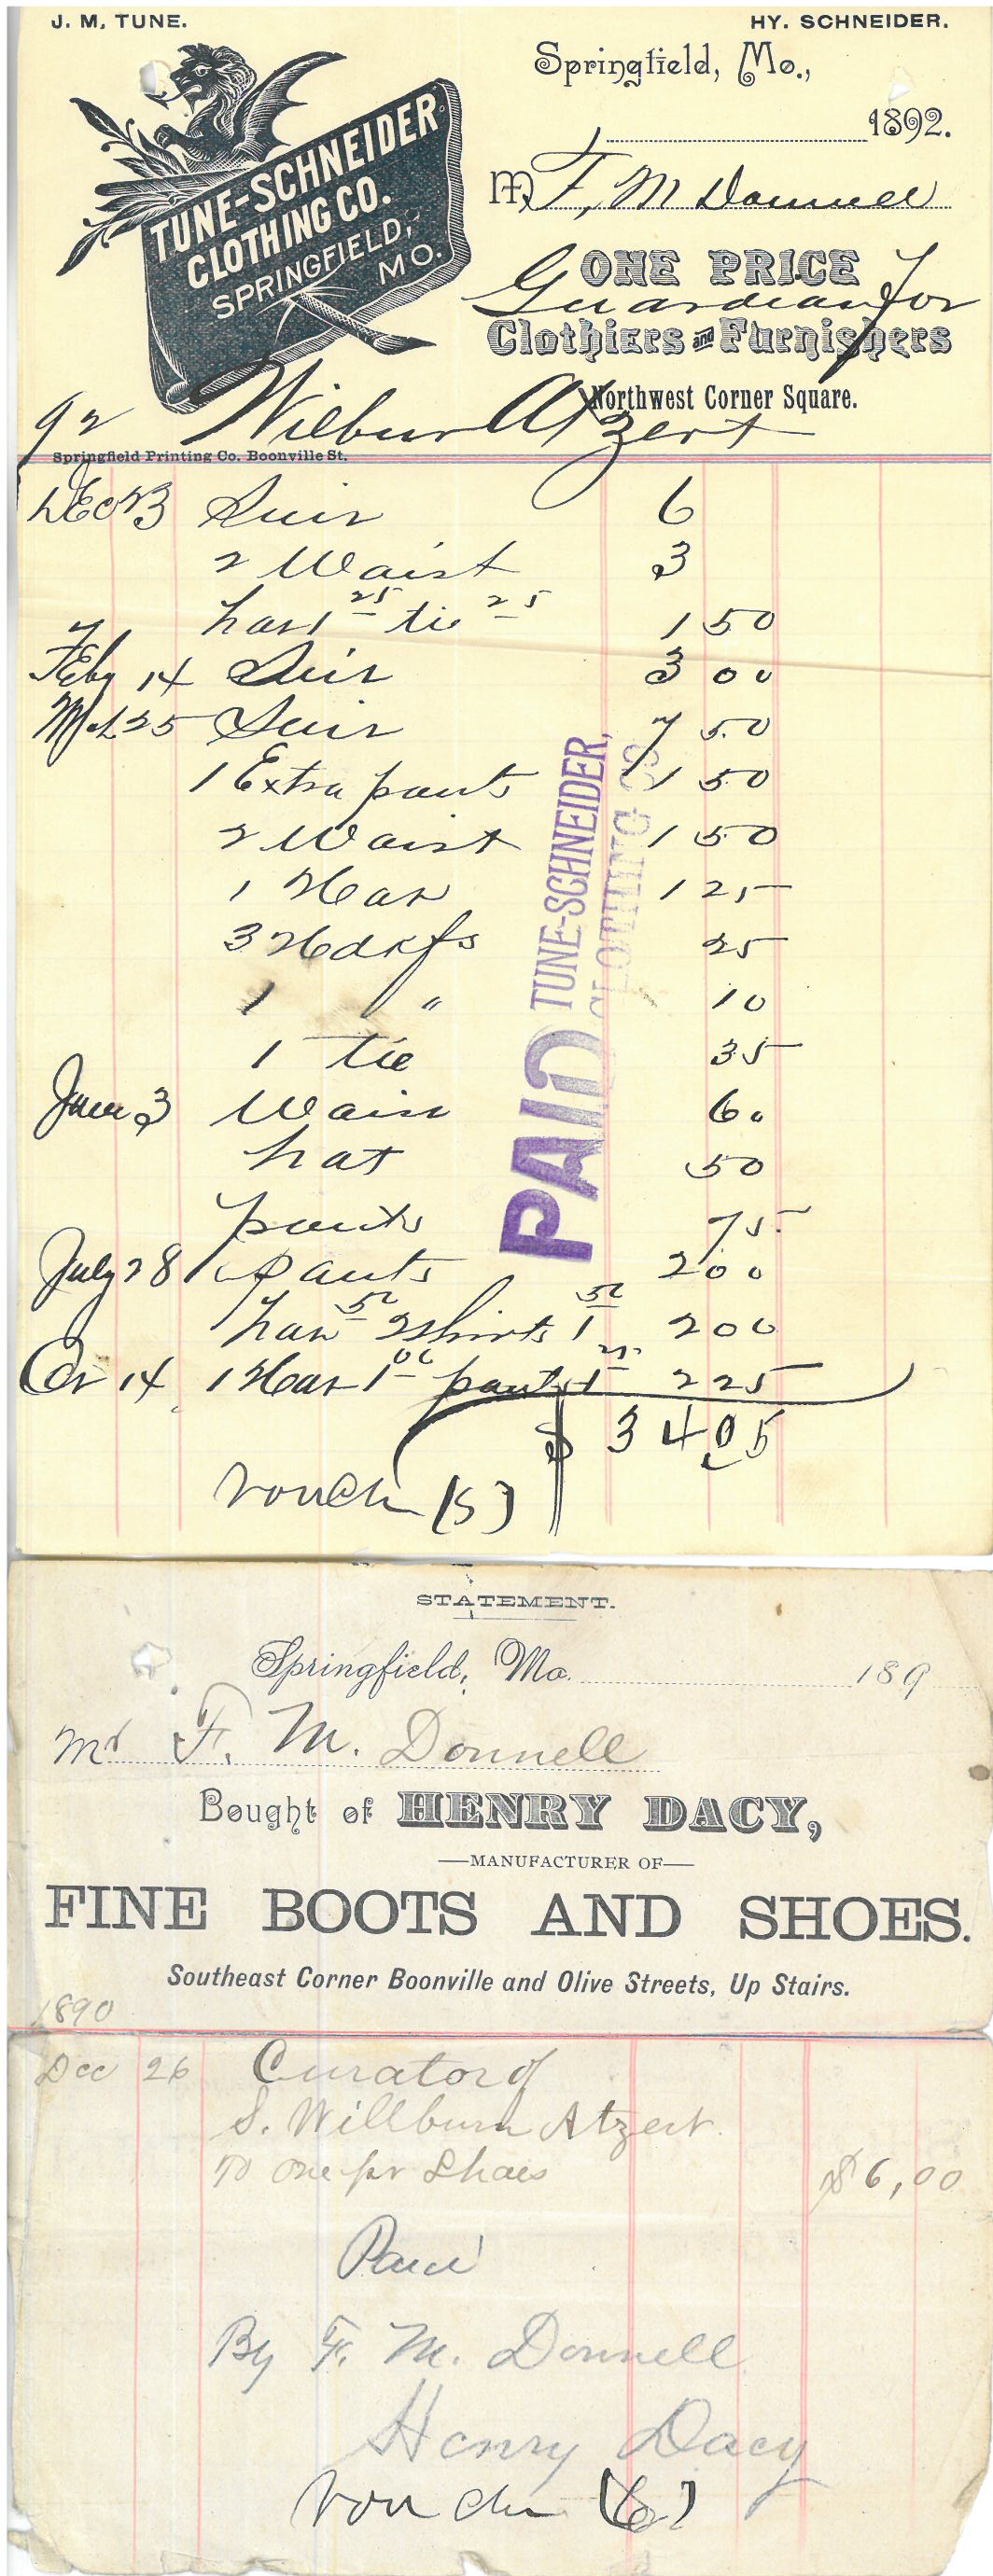 J. M. TUNE.
HY. SCHNEIDER.
TUNE-SCHNEIDER
CLOTHING CO.
SPRINGFIELD,
MO.
Springfield, Mo.,
1892.
M F. M Donnell
ONE PRICE
Guardian for
Clothiers and Furnishers
Northwest Corner Square.
92 Wilbur Atzert
Springfield Printing Co. Boonville St.
Dec 23 Suit 6
2 Waist 3
hat 1 25 tie 25 1 50
Feby 14 Suit 3 00
Mch 25 Suit 7 50
1 Extra pants 1 50
2 Waist 1 50
1 Hat 1 25
3 Hdkfs 25
1 " 10
1 tie 35
June 3 Waist 60
hat 50
pants 75
July 28 pants 2 00
hat 50 2 shirts 1 50 2 00
Oct 14 1 Hat 1 00 pants 1 25 2 25
$ 34 05
PAID TUNE-SCHNEIDER,
CLOTHING CO
vouch (5)
STATEMENT.
Springfield, Mo. 189
Mr F. M. Donnell
Bought of HENRY DACY,
—MANUFACTURER OF—
FINE BOOTS AND SHOES.
Southeast Corner Boonville and Olive Streets, Up Stairs.
1890
Dec 26 Curator of
S. Willburn Atzert
To one pr Shoes $6,00
Paid
By F. M. Donnell
Henry Dacy
voucher (6)